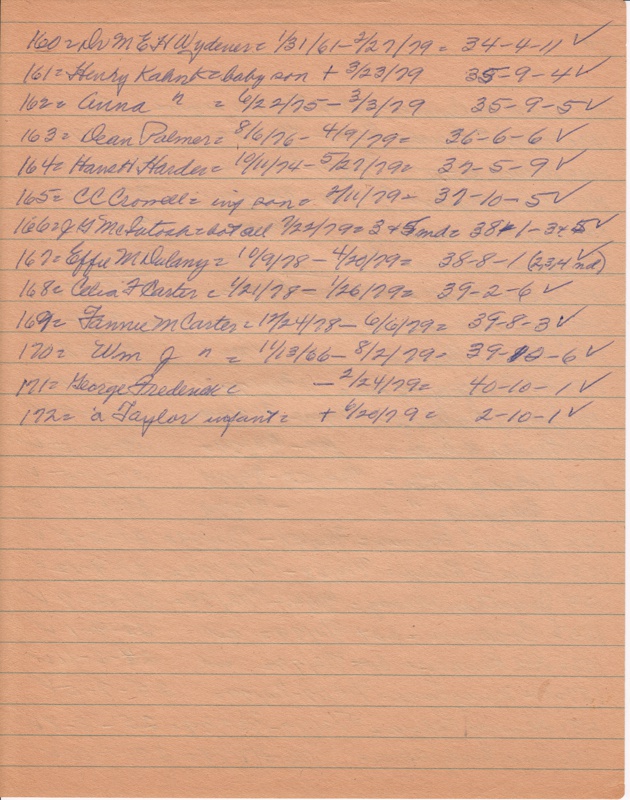 160 = Dr M E H Wydener = 1/31/61 – 2/27/79 = 34-4-11 ✓
161 = Henry Kahnk = baby son + 3/23/79 35-9-4 ✓
162 = Anna " = 6/22/75 – 3/3/79 35-9-5 ✓
163 = Dean Palmer = 8/6/76 – 4/9/79 = 36-6-6 ✓
164 = Hans H. Harder = 10/11/74 – 5/27/79 = 37-5-9 ✓
165 = C C Cromell = inf son = 2/11/79 – 37-10-5 ✓
166 = J G McIntosh = bot all 7/22/79 = 3 + 5 md = 38-1-3+5 ✓
167 = Effie M Dulany = 10/9/78 – 4/20/79 = 38-8-1 ✓ (2,3,4 md)
168 = Celia F Carter = 1/21/78 – 1/26/79 = 39-2-6 ✓
169 = Fannie M Carter = 12/24/78 – 6/6/79 = 39-8-3 ✓
170 = Wm J " = 11/13/66 – 8/2/79 = 39-10-6 ✓
171 = George Frederick = – 2/24/79 = 40-10-1 ✓
172 = a Taylor infant = + 6/20/79 = 2-10-1 ✓